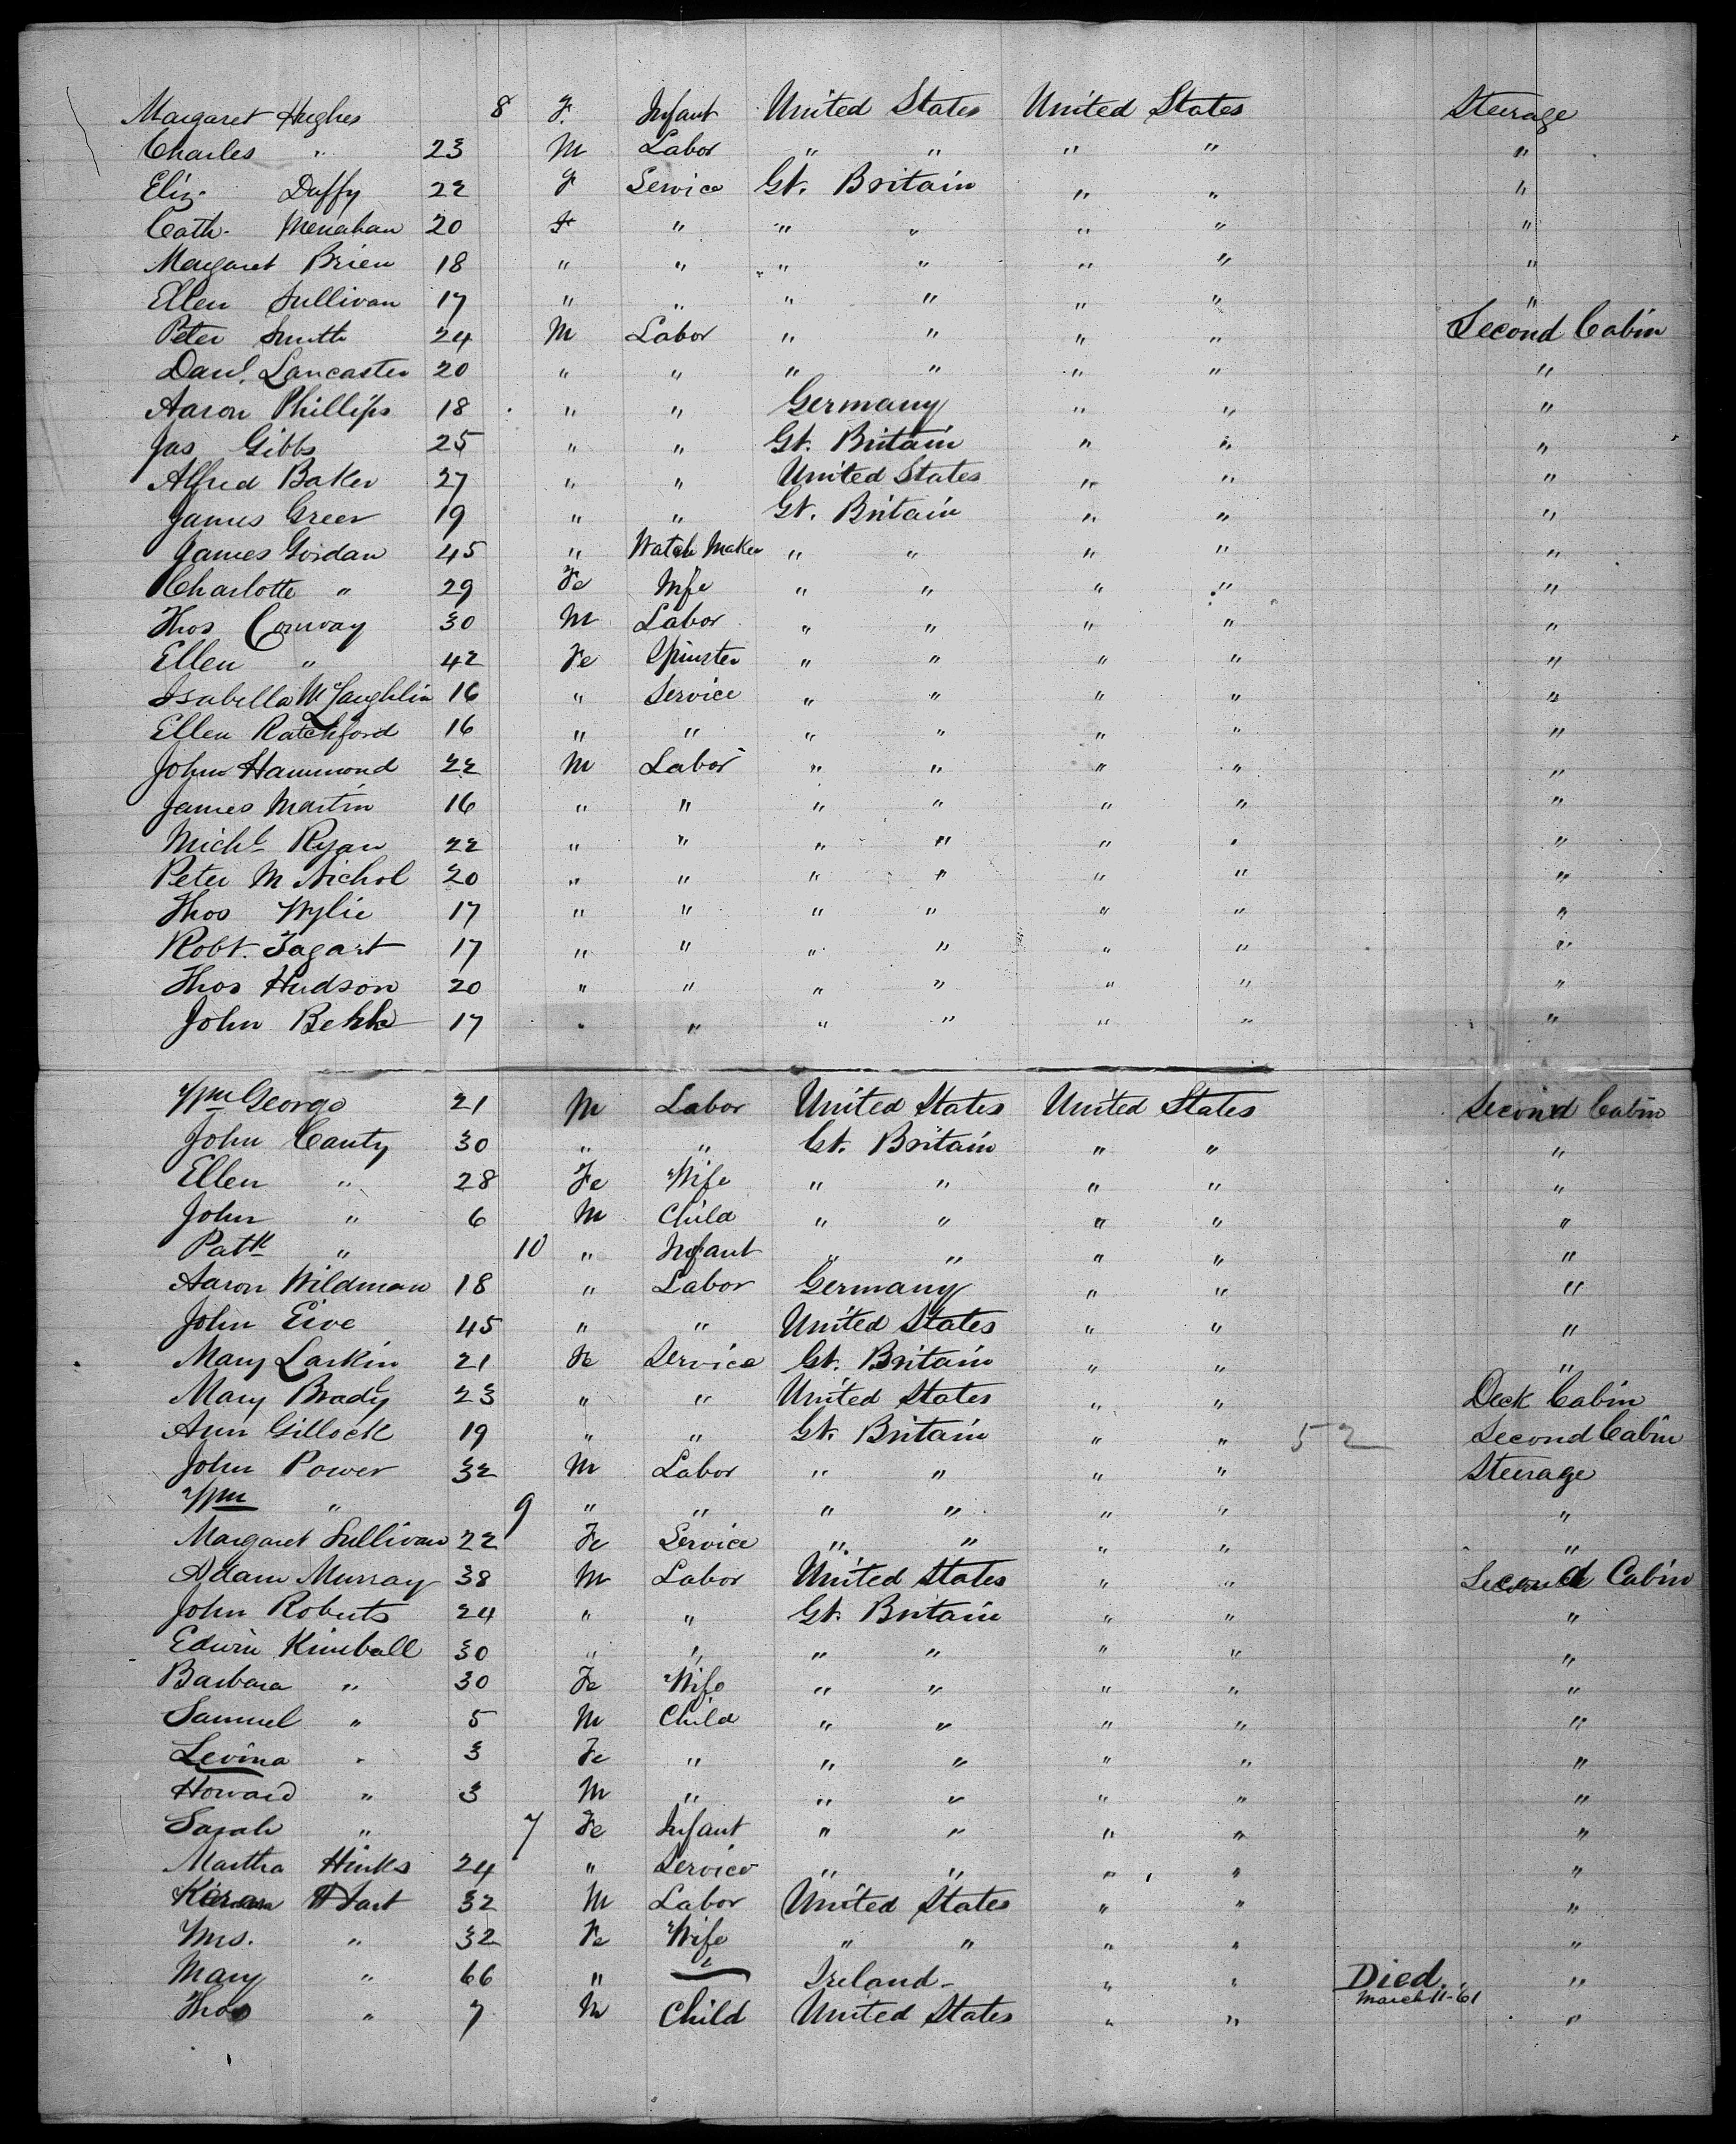 Margaret Hughes 8 F. Infant United States United States Steerage
Charles " 23 M Labor " " " " "
Eliz. Duffy 22 F Service Gt. Britain " " "
Cath. Menahan 20 F " " " " " "
Margaret Brien 18 " " " " " " "
Ellen Sullivan 17 " " " " " " "
Peter Smith 24 M Labor " " " " Second Cabin
Danl. Lancaster 20 " " " " " " "
Aaron Phillips 18 " " Germany " " "
Jas Gibbs 25 " " Gt. Britain " " "
Alfred Baker 27 " " United States " " "
James Greer 19 " " Gt. Britain " " "
James Gordan 45 " Watch Maker " " " " "
Charlotte " 29 Fe Wife " " " " "
Thos Conway 30 M Labor " " " " "
Ellen " 42 Fe Spinster " " " " "
Isabella McLaughlin 16 " Service " " " " "
Ellen Ratchford 16 " " " " " " "
John Hammond 22 M Labor " " " " "
James Martin 16 " " " " " " "
Michl Ryan 22 " " " " " " "
Peter M Nichol 20 " " " " " " "
Thos Wylie 17 " " " " " " "
Robt. Tagart 17 " " " " " " "
Thos Hudson 20 " " " " " " "
John 17 " " " " " " "
Wm George 21 M Labor United States United States Second Cabin
John Canty 30 " " Gt. Britain " " "
Ellen " 28 Fe Wife " " " " "
John " 6 M Child " " " " "
Patk " 10 " Infant " " " " "
Aaron Wildman 18 " Labor Germany " " "
John Eive 45 " " United States " " "
Mary Larkin 21 Fe Service Gt. Britain " " "
Mary Brady 23 " " United States " " Deck Cabin
Ann Gillock 19 " " Gt. Britain " " 52 Second Cabin
John Power 32 M Labor " " " " Steerage
Wm " 9 " " " " " " "
Margaret Sullivan 22 Fe Service " " " " "
Adam Murray 38 M Labor United States " " Second Cabin
John Roberts 24 " " Gt. Britain " " "
Edwin Kimball 30 " " " " " " "
Barbara " 30 Fe Wife " " " " "
Samuel " 5 M Child " " " " "
Levina " 3 Fe " " " " " "
Howard " 3 M " " " " " "
Sarah " 7 Fe Infant " " " " "
Martha Hinks 24 " Service " " " " "
Kieran Hart 32 M Labor United States " " "
Mrs. " 32 Fe Wife " " " " "
Mary " 66 " Ireland - " " Died. "
March 11 - 61
Thos " 7 M Child United States " " "